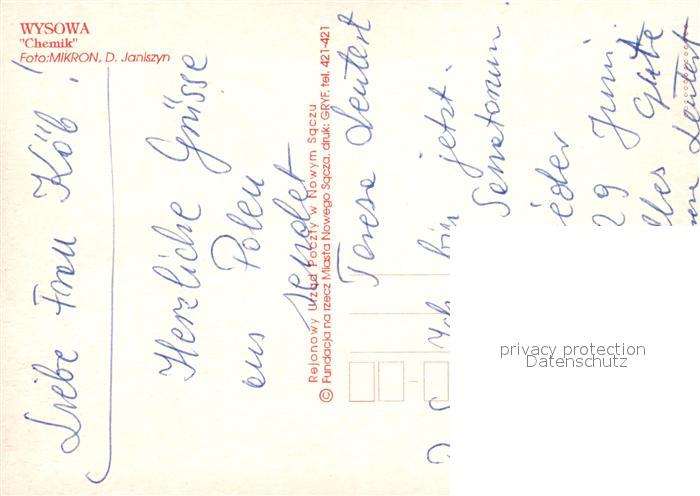 WYSOWA
"Chemik"
Foto:MIKRON, D. Janiszyn
Liebe Frau Köb!
Herzliche Grüsse
aus Polen
sendet
Teresa Leutert
Rejonowy Urząd Poczty w Nowym Sączu
© Fundacja na rzecz Miasta Nowego Sącza, druk: GRYF, tel. 421-421
Ich bin jetzt
Sanatorium
29 Juni
Gute
Leutert
privacy protection
Datenschutz